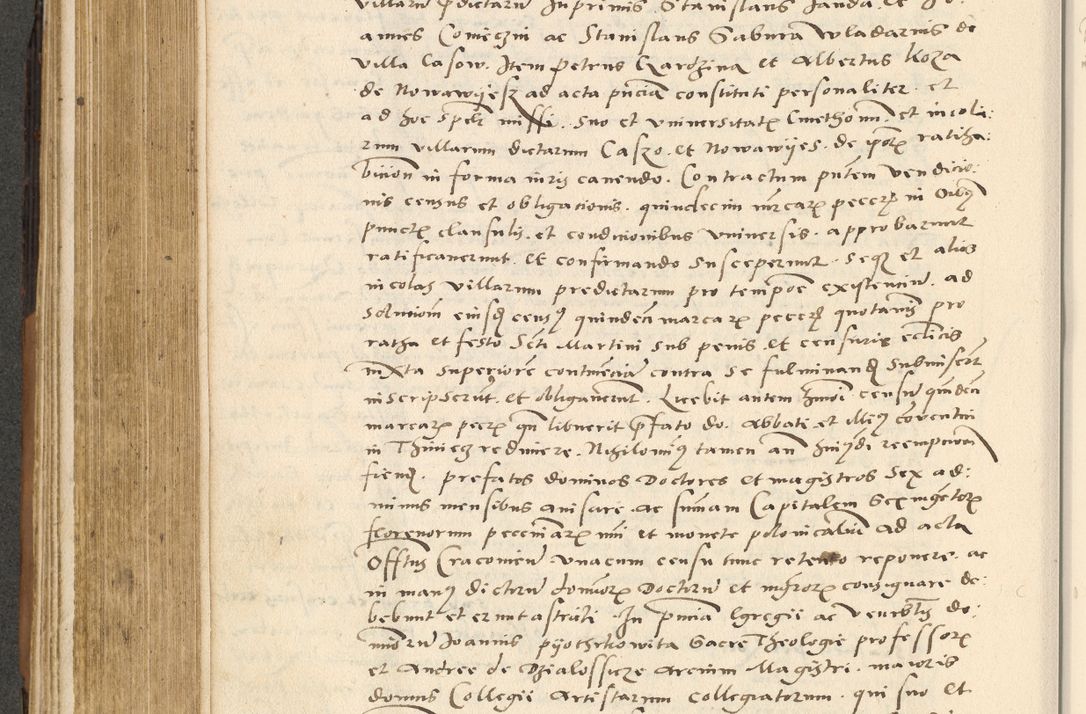 villarū p̄dictarū Inprimis Stanislaus Janda et Jo:
annes Comiczni ac Stanislaus Gabura Wladarius de
villa Casow. Item petrus Kardzina et Albertus Koza
de Nowawijesz ad acta pñcia constituti personaliter et
ad hoc speļr missi. suo et vniuersitatꝝ Cmethonū et incola:
rum villarum dictarum Caszo. et Nowawijes. de ipoꝝ ratiha:
bitiōn in forma iuris cauendo. Contractum pntem vendicio:
nis census et obligationis. quindecim mrcarꝝ peccꝝ in Oibꝫ
punctꝝ clausulis et conditionibus vniuersis. approbarunt
ratificauerunt et confirmando susceperunt. seqꝫ et alios
incolas villarum predictarum pro tempore existentiū. ad
solutioni eiusdꝫ censꝰ quindeci marcarꝝ peccꝝ quotanis pro
ratha et festo Scti Martini sub penis et censuris ecclicis
iuxta superiore continencia contra se fulminandꝫ submisert
inscripserūt. et obligauerunt. Licebit autem hmoi. censū quidecī
marcarꝝ peccꝝ qn libuerit p̄fato do. Abbati et illiꝰ couentui
in Thiniecz redimere. Nihilominꝰ tamen an hmodi reemptionem
fiendꝫ. prefatos dominos Doctores et magistros sex ad:
minus mensibus auisare. ac sumam Capitalem sexingetoꝝ
florenorum pecuniarꝝ mi et monete polonicaliū ad acta
Offtus Cracouien vnacum censu tunc retento reponere. ac
in manꝰ dictorū domoꝝ Doctorū et mgroꝝ consignare de:
bebunt et erunt astricti. In pncia Egregii ac venerabilis do:
minorū Joannis pyothrkowita Sacre Theologie professorꝝ
et Andree de Dzialossicze arcium Magistri. maioris
domus Collegii Artistarum collegiatorum. qui suo et